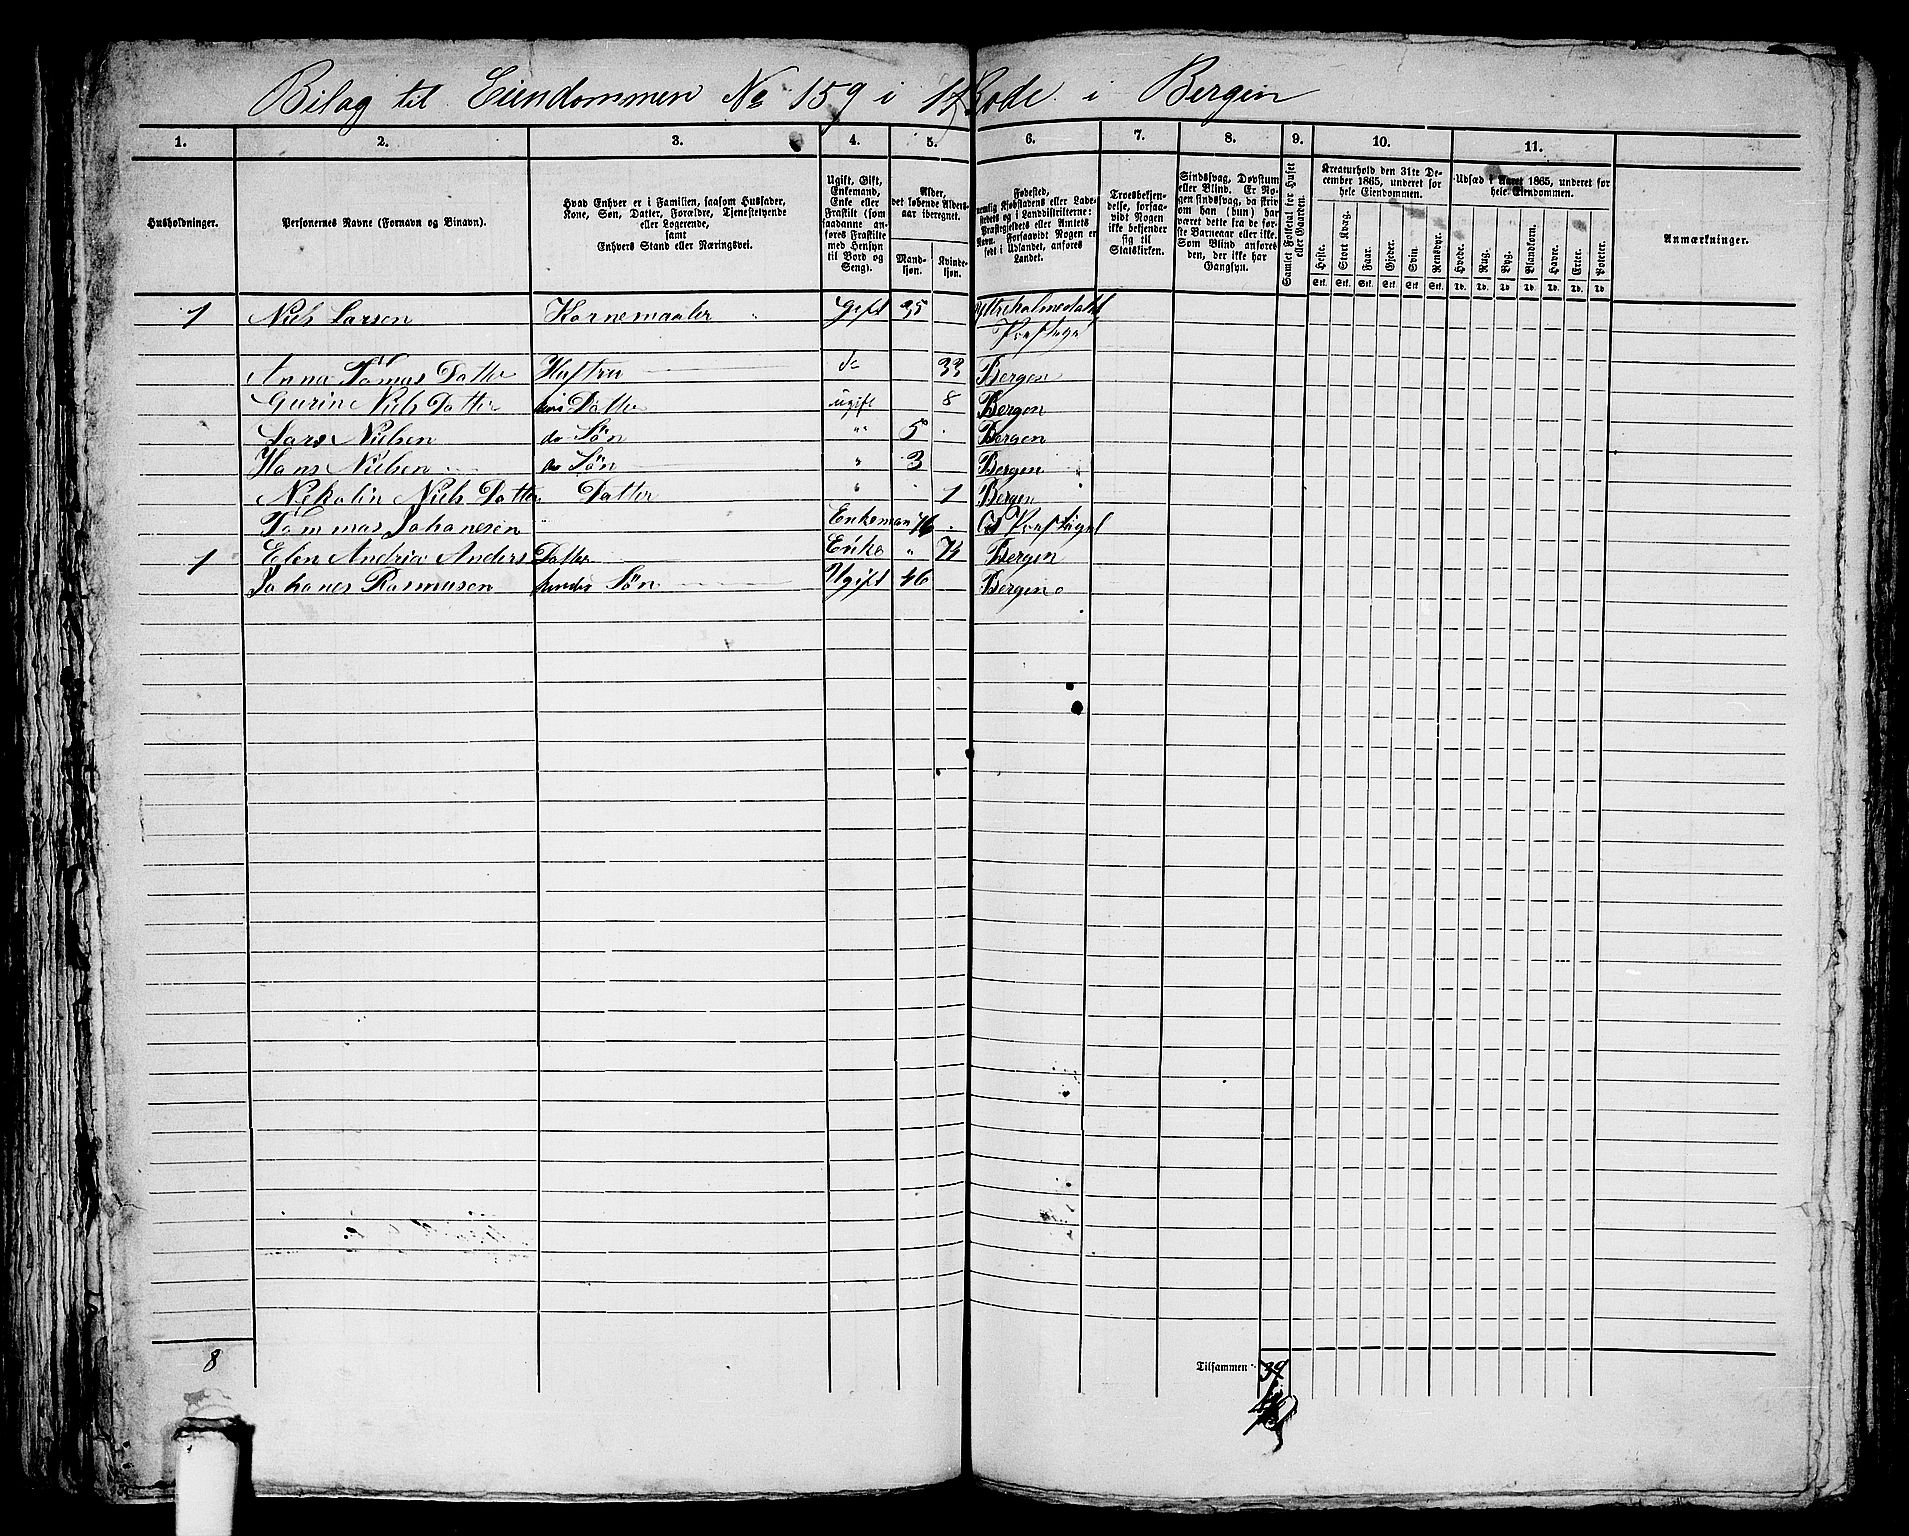 Bilag til Eiendommen No 159 i 12 Rode i Bergen
1. 2. 3. 4. 5. 6. 7. 8. 9. 10. 11.
Husholdninger.
Personernes Navne (Fornavn og Binavn).
Hvad Enhver er i Familien, saasom Husfader, Kone, Søn, Datter, Forældre, Tjenestetyende eller Logerende, samt Enhvers Stand eller Næringsvei.
Ugift, Gift, Enkemand, Enke eller Fraskilt (som saadanne anføres Fraskilte med Hensyn til Bord og Seng).
Alder, det løbende Aldersaar iberegnet.
Mandkjøn. Kvindekjøn.
Fødested, nemlig Kjøbstadens eller Ladestedets og i Landdistrikterne: Præstegjeldets eller Amtets Navn. Forsaavidt Nogen er født i Udlandet, anføres Landet.
Troesbekjendelse, forsaavidt Nogen ikke bekjender sig til Statskirken.
Sindssvag, Døvstum eller Blind. Er Nogen sindssvag, da skriv om han (hun) har været dette fra de første Barneaar eller ikke. Som Blind anføres den, der ikke har Gangsyn.
Samlet Folketal for Huset eller Gaarden.
Kreaturhold den 31te December 1865, underet for hele Eiendommen.
Heste. Stort Kvæg. Faar. Gjeder. Svin. Rensdyr.
Stk. Stk. Stk. Stk. Stk. Stk.
Udsæd i Aaret 1865, underet for hele Eiendommen.
Hvede. Rug. Byg. Blandkorn. Havre. Erter. Poteter.
Td. Td. Td. Td. Td. Td. Td.
Anmærkninger.
1 Niels Larsen Kornemaaler Gift 35
Anna Tomas Datter Hustru do 33 Bergen
Gurine Niels Datter hans Datter ugift 8 Bergen
Lars Nielsen do Søn " 5 Bergen
Hans Nielsen do Søn " 3 Bergen
Nikolin Niels Datter Datter " 1 Bergen
Tommas Johanesen Enkeman 76
1 Elen Andria Anders Datter Enke " Bergen
Johanes Rasmusen hendes Søn Ugift 46 Bergen
8
Tilsammen